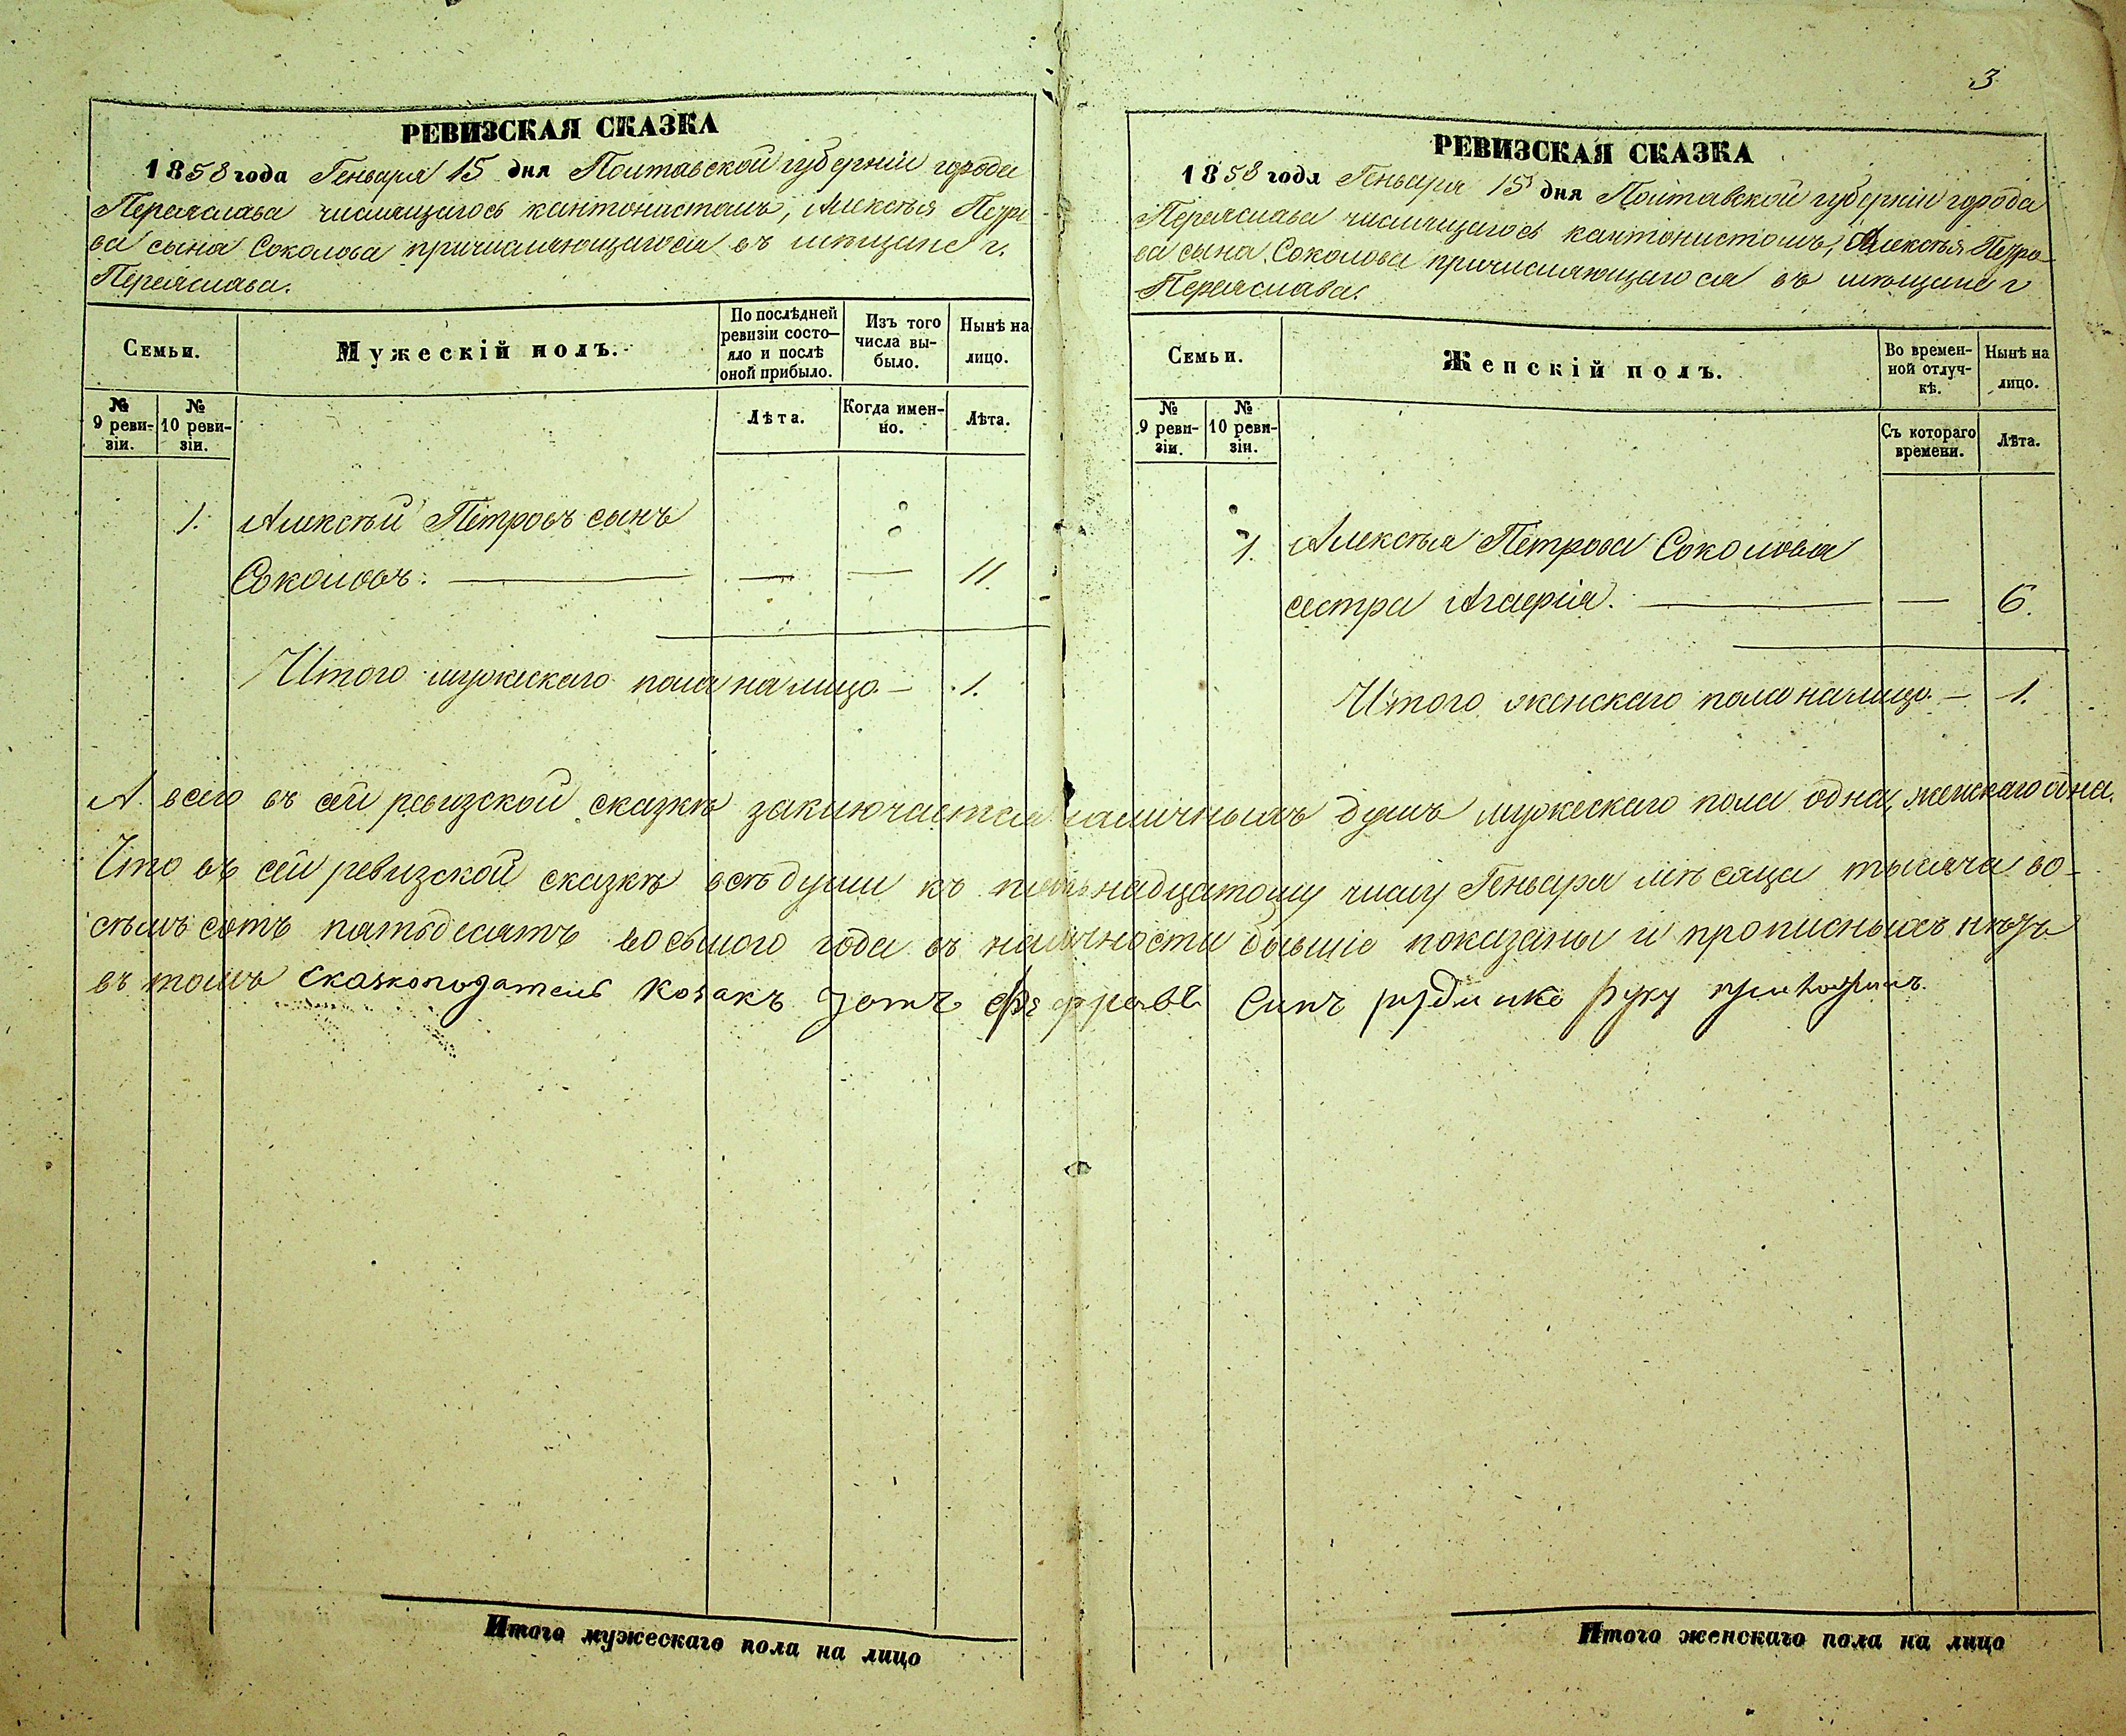 РЕВИЗСКАЯ СКАЗКА
1858 года Геньваря 15 дня Полтавской губерніи города
Переяслава числящагося кантонистомъ, Алексѣя Петро-
ва сына Соколова причисляющагося въ мѣщане г.
Переяслава.
Семьи.
Мужескій полъ.
По послѣдней
ревизіи состо-
яло и послѣ
оной прибыло.
Изъ того
числа вы-
было.
Нынѣ на
лицо.
№
9 реви-
зіи.
№
10 реви-
зіи.
Лѣта.
Когда имен-
но.
Лѣта.
1. Алексѣй Петровъ сынъ
Соколовъ. — — — 11
Итого мужескаго пола на лицо — 1.
3
РЕВИЗСКАЯ СКАЗКА
1858 года Геньваря 15 дня Полтавской губерніи города
Переяслава числящагося кантонистомъ, Алексѣя Петро-
ва сына Соколова причисляющагося въ мѣщане г
Переяслава.
Семьи.
Женскій полъ.
Во времен-
ной отлуч-
кѣ.
Нынѣ на
лицо.
№
9 реви-
зіи.
№
10 реви-
зіи.
Съ котораго
времени.
Лѣта.
1. Алексѣя Петрова Соколова
сестра Агафія. — — 6.
Итого женскаго пола на лицо — 1.
А всего въ сей ревизской сказкѣ заключается наличныхъ душъ мужескаго пола одна, женскаго одна.
Что въ сей ревизской сказкѣ всѣ души къ пятьнадцатому числу Геньваря мѣсяца тысяча во-
семъ сотъ пятьдесятъ восьмого года въ наличности бывшіе показаны и прописныхъ нѣтъ
въ томъ сказкоподатель козакъ синъ руку приложилъ.
Итого мужескаго пола на лицо
Итого женскаго пола на лицо